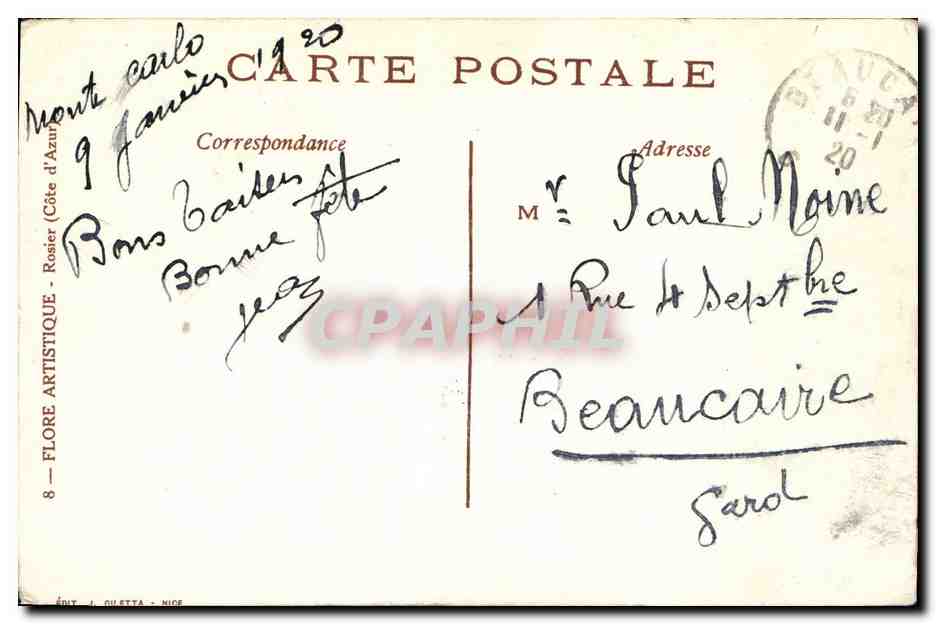 CARTE POSTALE
Monte Carlo
9 Janvier 1920
Correspondance
Bons baisers
Bonne fête
Jean
Adresse
Mr Paul Moine
1 Rue 4 Septbre
Beaucaire
Gard
BEAUCA
11 -1
20
CPAPHIL
8 — FLORE ARTISTIQUE - Rosier (Côte d'Azur)
ÉDIT. J. GILETTA - NICE